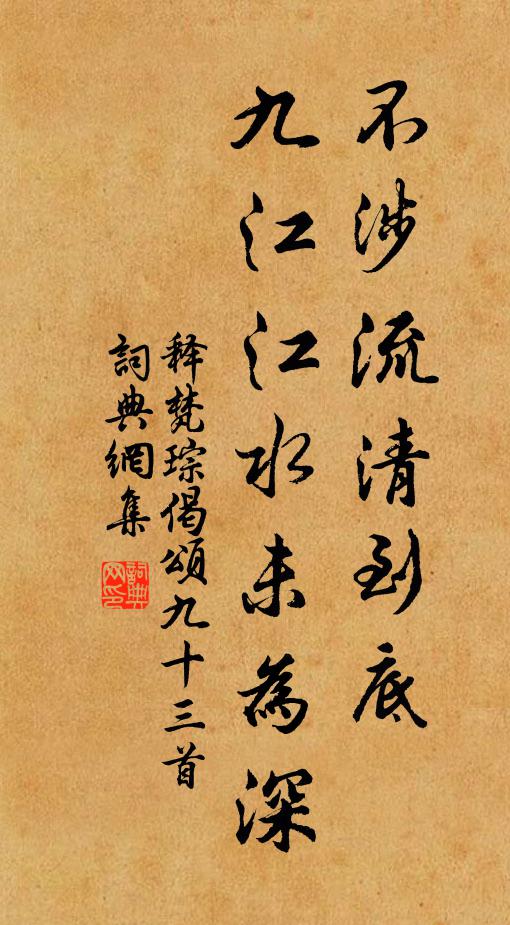 不涉流清到底
九江江水未為深
释梵琮偈頌九十三首
詞典網集
詞典網印